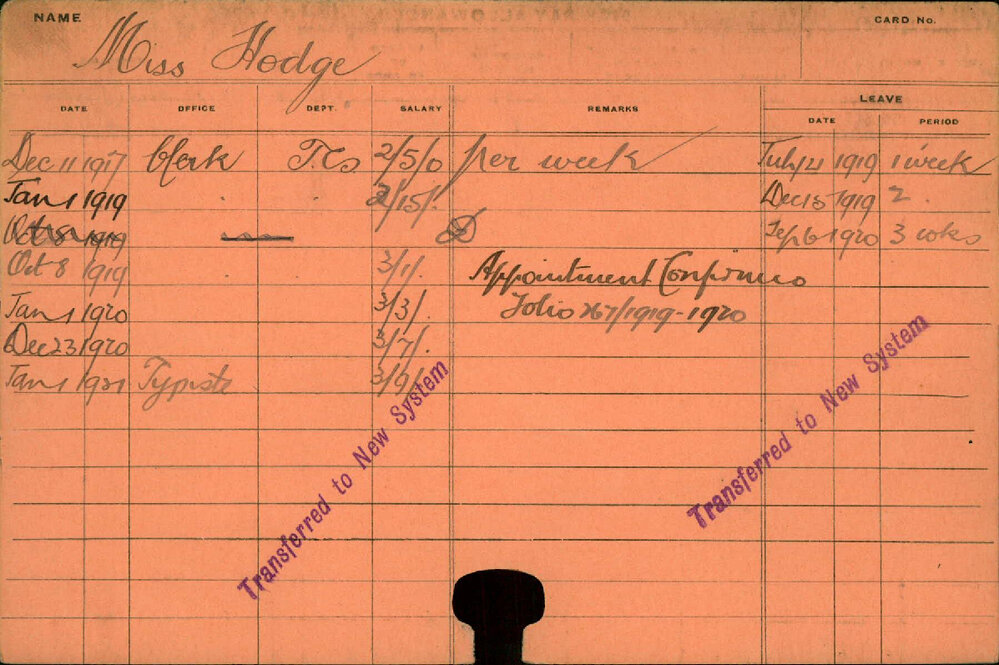 NAME Miss Hodge CARD No.
DATE OFFICE DEPT. SALARY REMARKS LEAVE
DATE PERIOD
Dec 11 1917 Clerk T.Cs 2/5/0 per week July 21 1919 1 week
Jan 1 1919 . 2/15/. Dec 15 1919 2
Oct 8 1919 Sep 6 1920 3 wks
Oct 8 1919 . 3/1/. Appointment Confirmed
Jan 1 1920 3/3/. Folio 267/1919-1920
Dec 23 1920 3/7/.
Jan 1 1921 Typiste 3/9/.
Transferred to New System
Transferred to New System